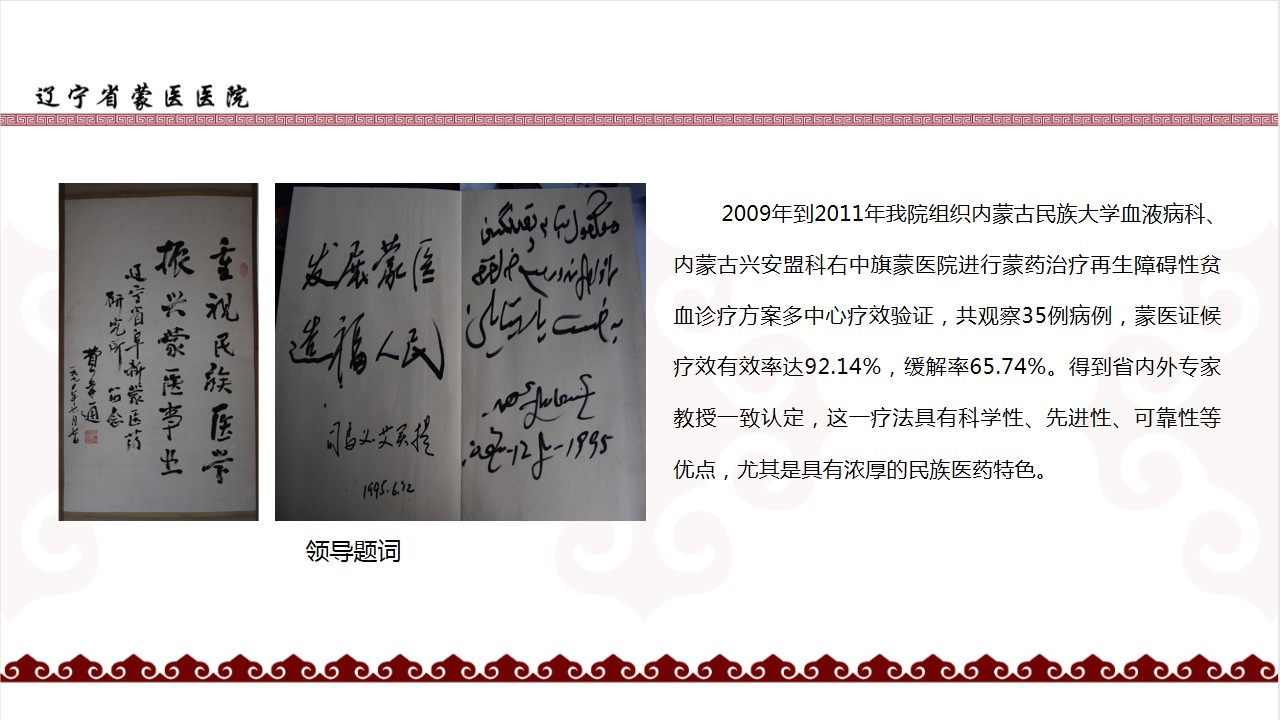 辽宁省蒙医医院
重视民族医学
振兴蒙医事业
辽宁省阜新蒙医药
研究所 留念
费孝通
发展蒙医
造福人民
司马义·艾买提
1995.6.12
12
1995
领导题词
2009年到2011年我院组织内蒙古民族大学血液病科、
内蒙古兴安盟科右中旗蒙医院进行蒙药治疗再生障碍性贫
血诊疗方案多中心疗效验证，共观察35例病例，蒙医证候
疗效有效率达92.14%，缓解率65.74%。得到省内外专家
教授一致认定，这一疗法具有科学性、先进性、可靠性等
优点，尤其是具有浓厚的民族医药特色。